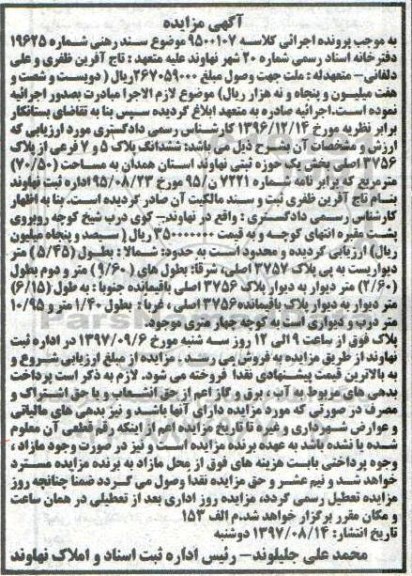 آگهی مزایده
به موجب پرونده اجرائی کلاسه ۹۵۰۰۱۰۷ موضوع سند رهنی شماره ۱۹۶۲۵
دفترخانه اسناد رسمی شماره ۲۰ شهر نهاوند علیه متعهد : تاج آفرین ظفری و علی
دلفانی- متعهدله : ملت جهت وصول مبلغ ۲۶۷۰۵۹۰۰۰ریال ( دویست و شصت و
هفت میلیون و پنجاه و نه هزار ریال) موضوع لازم الاجرا مبادرت بصدور اجرائیه
نموده است.اجرائیه صادره به متعهد ابلاغ گردیده سپس بنا به تقاضای بستانکار
برابر نظریه مورخ ۱۳۹۶/۱۲/۱۴ کارشناس رسمی دادگستری مورد ارزیابی که
ارزش و مشخصات آن بشرح ذیل می باشد: ششدانگ پلاک ۵ و ۷ فرعی از پلاک
۳۷۵۶ اصلی بخش یک حوزه ثبتی نهاوند استان همدان به مساحت (۷۰/۵۰)
مترمربع که برابر نامه شماره ۷۲۲۱ ن/۹۵ مورخ ۹۵/۰۸/۲۳ اداره ثبت نهاوند
بنام تاج آفرین ظفری ثبت و سند مالکیت آن صادر گردیده است. بنا به اظهار
کارشناس رسمی دادگستری : واقع در نهاوند- کوی درب شیخ کوچه روبروی
پشت مقبره انتهای کوچه و به قیمت ۳۵۰۰۰۰۰۰۰ ریال ( سیصد و پنجاه میلیون
ریال) ارزیابی گردیده و محدود است به حدود: شمالا : بطول (۵/۴۵) متر
دیواریست به پی پلاک ۳۷۵۷ اصلی، شرقا: بطول های (۹/۶۰) متر و دوم بطول
(۲/۶۰) متر دیوار به دیوار پلاک ۳۷۵۶ اصلی باقیمانده جنوبا : به طول (۶/۱۵)
متر دیوار به دیوار پلاک باقیمانده ۳۷۵۶ اصلی ، غربا : بطول ۱/۴۰ متر و ۱۰/۹۵
متر درب و دیواری است به کوچه چهار متری موجود.
پلاک فوق از ساعت ۹ الی ۱۲ روز سه شنبه مورخ ۱۳۹۷/۰۹/۶ در اداره ثبت
نهاوند از طریق مزایده به فروش می رسد . مزایده از مبلغ ارزیابی شروع و
به بالاترین قیمت پیشنهادی نقدا فروخته می شود. لازم به ذکر است پرداخت
بدهی های مربوط به آب ، برق و گاز اعم از حق انشعاب و یا حق اشتراک و
مصرف در صورتی که مورد مزایده دارای آنها باشد و نیز بدهی های مالیاتی
و عوارض شهرداری و غیره تا تاریخ مزایده اعم از اینکه رقم قطعی آن معلوم
شده یا نشده باشد به عهده برنده مزایده است و نیز در صورت وجود مازاد ،
وجوه پرداختی بابت هزینه های فوق از محل مازاد به برنده مزایده مسترد
خواهد شد و نیم عشر و حق مزایده نقدا وصول می گردد ضمنا چنانچه روز
مزایده تعطیل رسمی گردد، مزایده روز اداری بعد از تعطیلی در همان ساعت
و مکان مقرر برگزار خواهد شد.م الف ۱۵۳
تاریخ انتشار: ۱۳۹۷/۰۸/۱۴ دوشنبه
محمد علی جلیلوند- رئیس اداره ثبت اسناد و املاک نهاوند